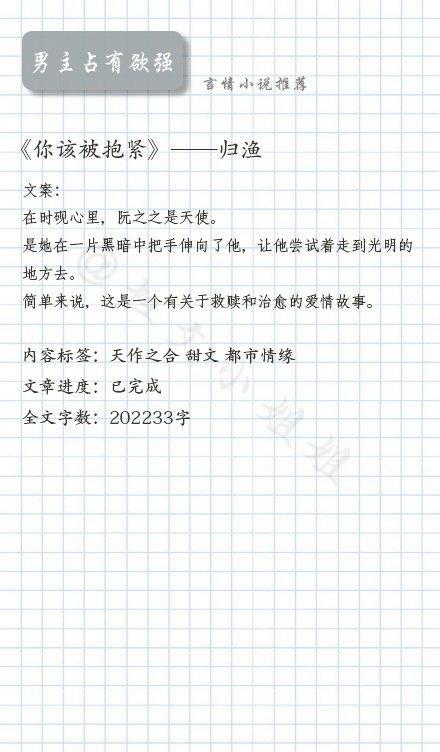 男主占有欲强
言情小说推荐
《你该被抱紧》——归渔
文案：
在时砚心里，阮之之是天使。
是她在一片黑暗中把手伸向了他，让他尝试着走到光明的
地方去。
简单来说，这是一个有关于救赎和治愈的爱情故事。
内容标签：天作之合 甜文 都市情缘
文章进度：已完成
全文字数：202233字
小姐姐